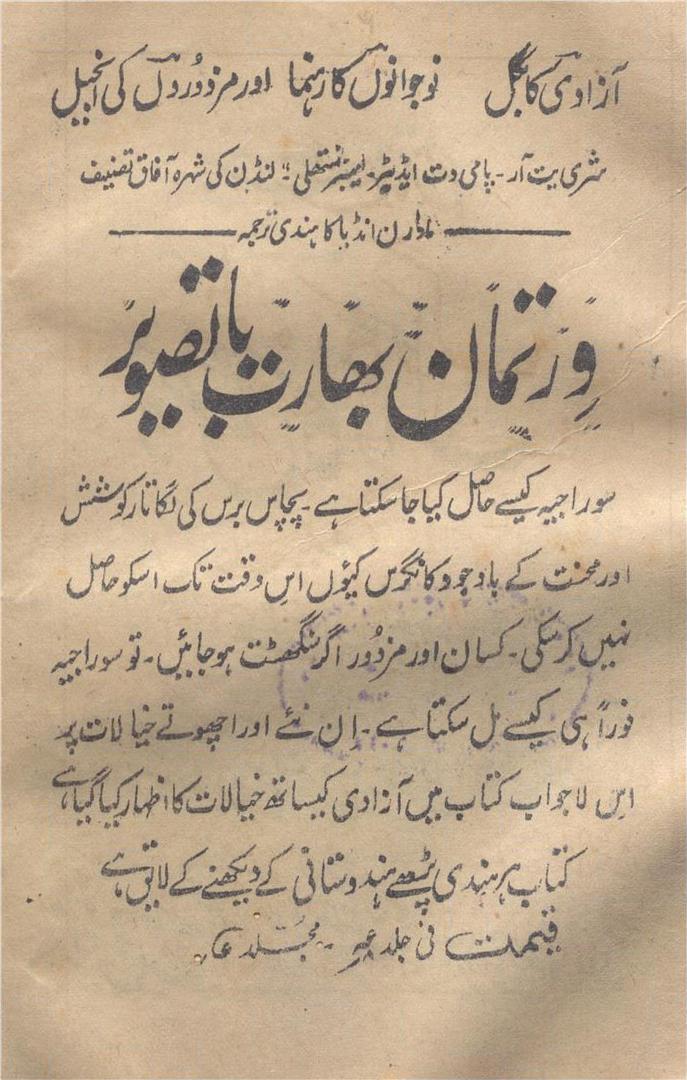 آزادی کا بگل نوجوانوں کا رہنما اور مزدوروں کی انجیل
شری یت آر۔ پامی دت ایڈیٹر۔ لیبر منتھلی" لنڈن کی شہرہ آفاق تصنیف
ماڈرن انڈیا کا ہندی ترجمہ
ورتمان بھارت باتصویر
سوراجیہ کیسے حاصل کیا جا سکتا ہے۔ پچاس برس کی لگاتار کوشش
اور محنت کے باوجود کانگرس کیوں اس وقت تک اسکو حاصل
نہیں کر سکی۔ کسان اور مزدور اگر سنگھٹت ہو جائیں۔ تو سوراجیہ
فوراً ہی کیسے مل سکتا ہے۔ ان نئے اور اچھوتے خیالات پر
اس لاجواب کتاب میں آزادی کیساتھ خیالات کا اظہار کیا گیا ہے
کتاب ہر ہندی پڑھے ہندوستانی کے دیکھنے کے لائق ہے
قیمت فی جلد ۔ مجلد